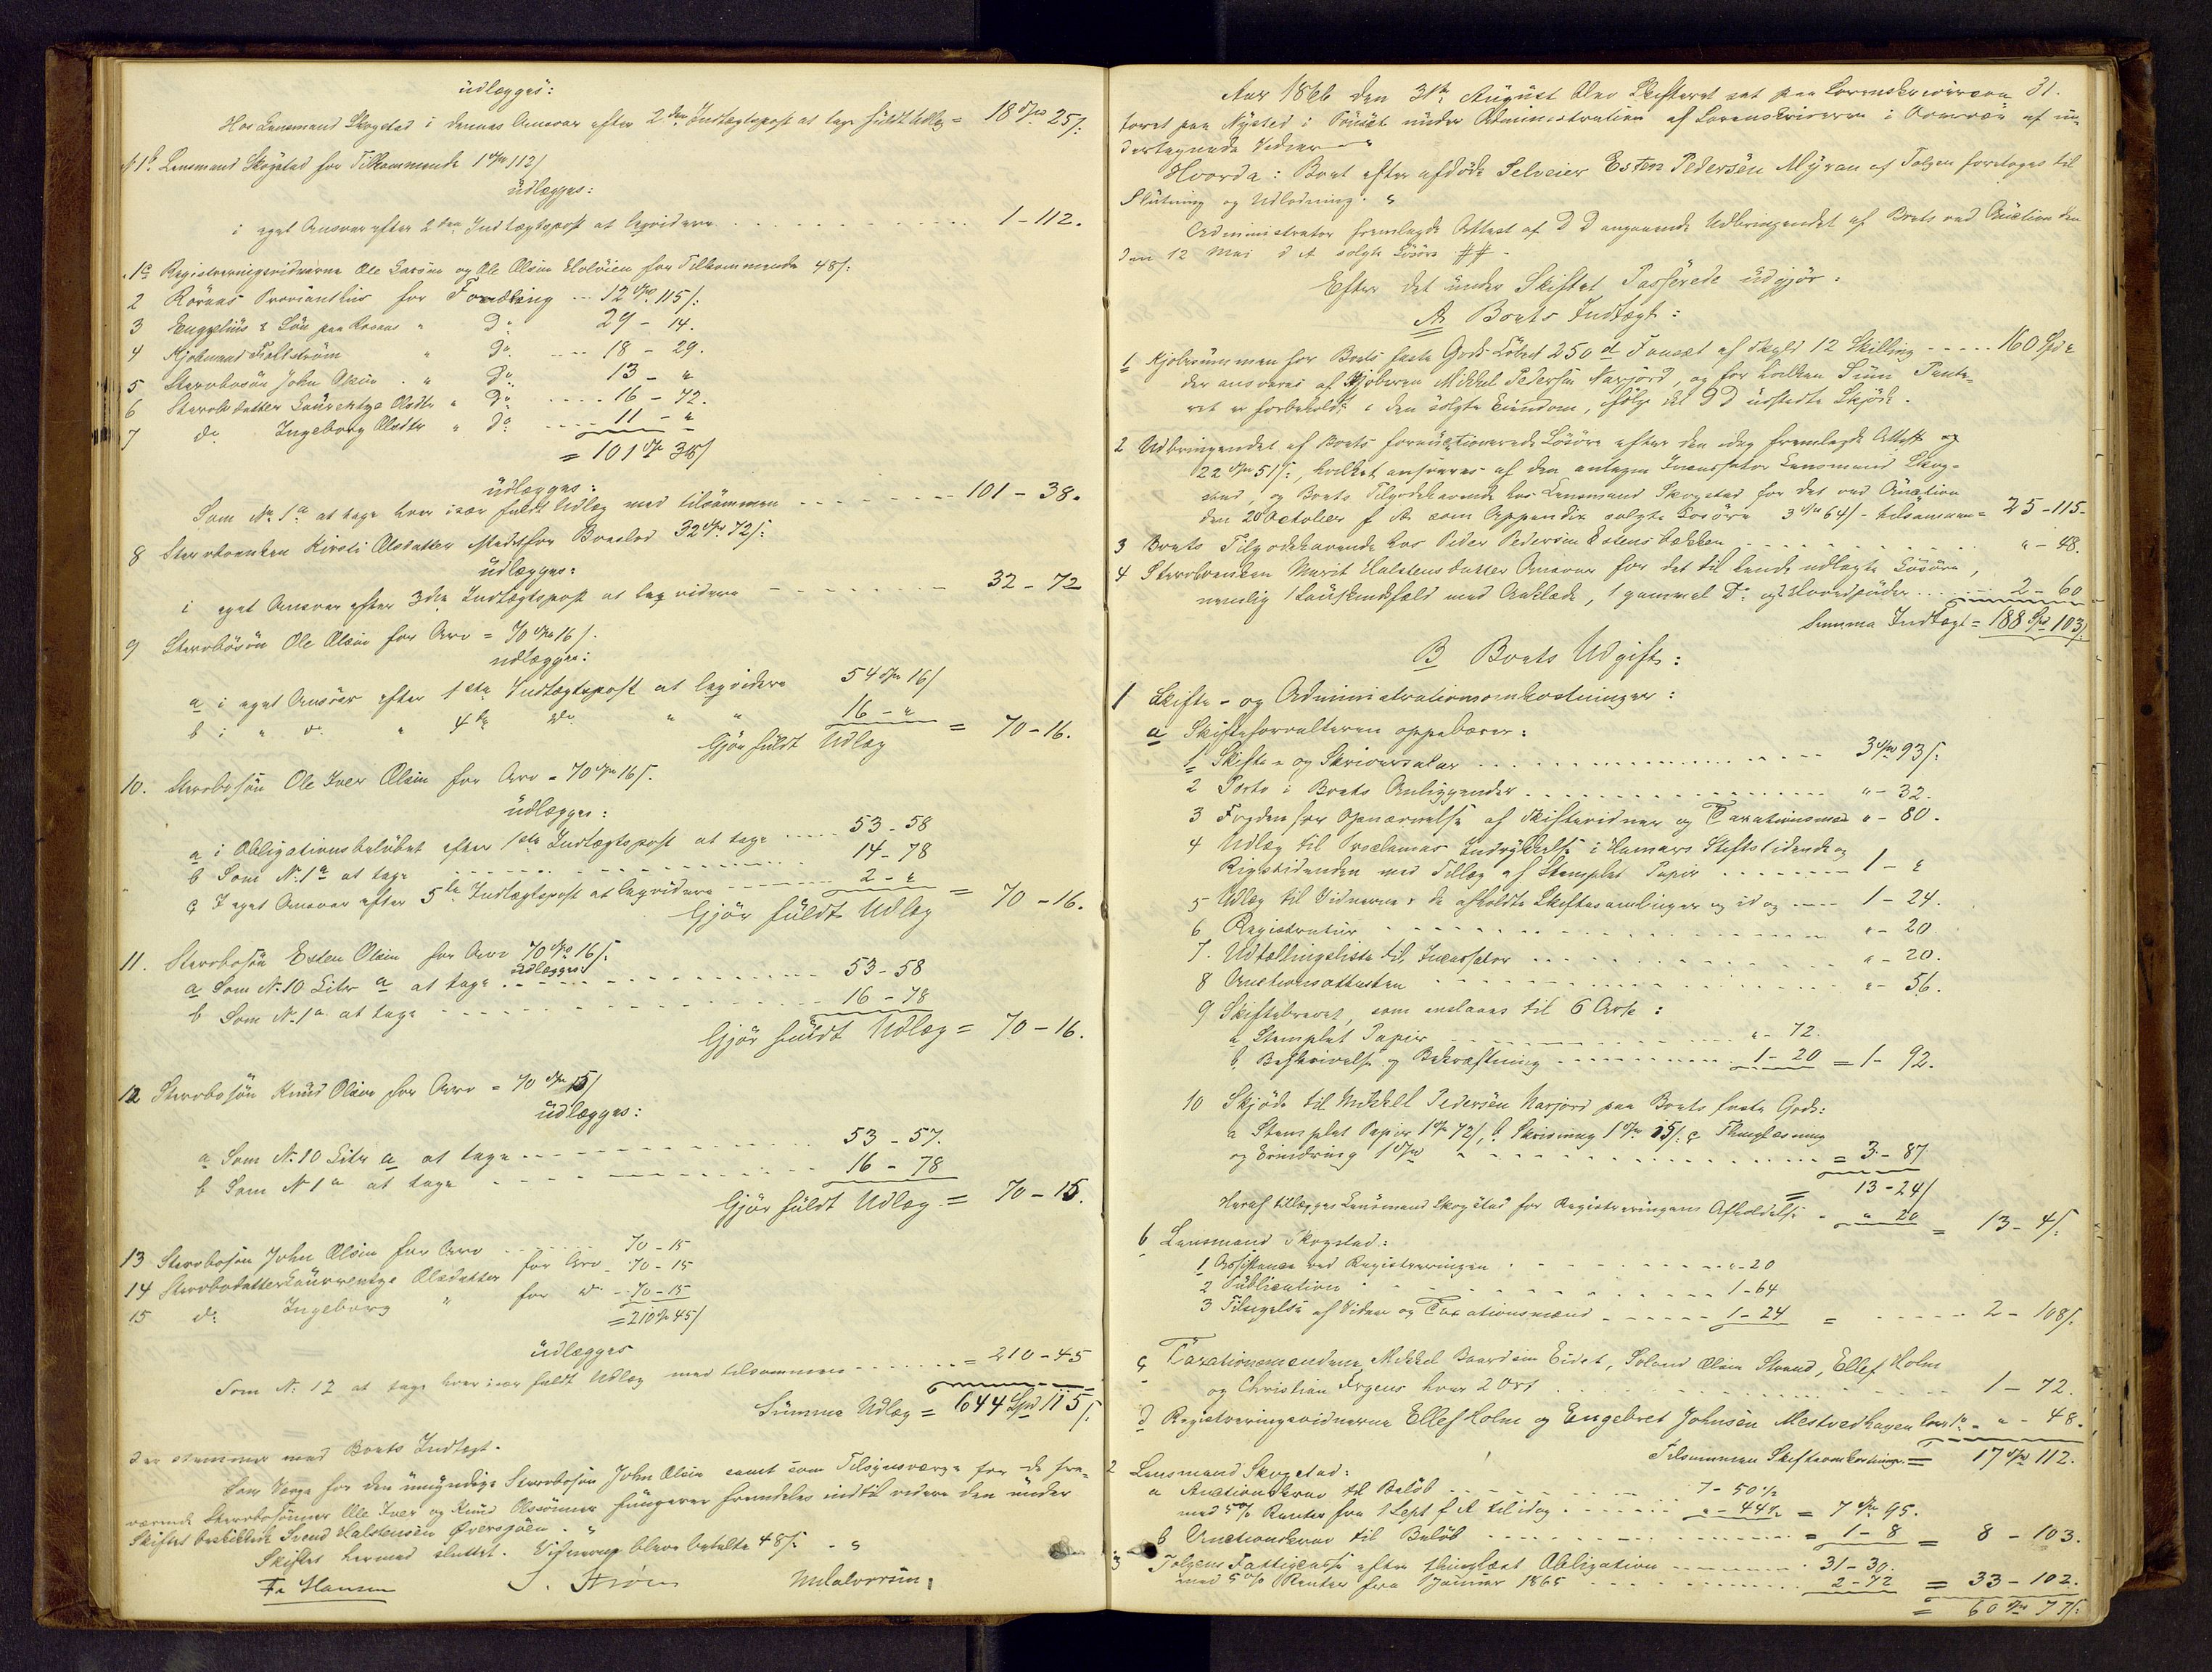 udlægges:
Hos Lensmand Skogstad i dennes Ansvar efter 2den Indtægtspost at tage fuldt Udlæg = 18 Spd 25 s:
№ 1b. Lensmand Skogstad for Tilkommende 1 Spd 112 s
udlægges:
i eget Ansvar efter 2den Indtægtspost at liqvidere 1 - 112.
1c Registreringsvidnerne Ole Larsen og Ole Olsen Holöien for Tilkommende 48 s:
2 Röraas Provianthus for Fordring 12 Spd 115 s:
3 Engzelius & Sön paa Röraas " Do 29 - 14.
4 Kjöbmand Fjeltström " Do. 18 - 29.
5 Stervbosön John Olsen " Do 13 - "
6 Stervbodatter Laurentze Olsdtr " Do 16 - 72.
7 do Ingeborg Olsdtr " Do 11 - "
= 101 Spd 38 s
udlægges:
Som № 1a at tage hver især fuldt Udlæg med tilsammen 101 - 38.
8 Stervboenken Kirsti Olsdatter Mødet for Boeslod 32 Spd 72 s:
udlægges:
i eget Ansvar efter 3die Indtægtspost at liqvidere 32 - 72
9 Stervbosön Ole Olsen for Arv = 70 Spd 16 s.
udlægges:
a i eget Ansvar efter 1ste Indtægtspost at liqvidere 54 Spd 16 s
b i " do " 4de do " " 16 - "
Gjör fuldt Udlæg = 70 - 16.
10. Stervbosön Ole Iver Olsen for Arv = 70 Spd 16 s.
udlægges:
a i Obligationsbelöbet efter 1ste Indtægtspost at tage 53 - 58
b Som № 1a at tage 14 - 78
c I eget Ansvar efter 5te Indtægtspost at liqvidere 2 - "
Gjör fuldt Udlæg = 70 - 16.
11. Stervbosön Esten Olsen for Arv 70 Spd 16 s:
udlægges:
a Som № 10 Litr a at tage 53 - 58
b Som № 1a at tage 16 - 78
Gjör fuldt Udlæg = 70 - 16.
12 Stervbosön Knud Olsen for Arv = 70 Spd 15 s
udlægges:
a Som № 10 Litr a at tage 53 - 57.
b Som № 1a at tage 16 - 78
Gjör fuldt Udlæg = 70 - 15.
13 Stervbosön John Olsen for Arv 70 - 15
14 Stervbodatter Laurentze Olsdatter for Arv 70 - 15
15 do Ingeborg " for do 70 - 15
= 210 Spd 45 s
udlægges
Som № 12 at tage hver især fuldt Udlæg med tilsammen = 210 - 45
Summa Udlæg = 644 Spd 115 s:
der stemmer med Boets Indtægt.
Som Værge for den umyndige Stervbosön John Olsen samt som Tilsynsværge for de fra-
værende Stervbosönner Ole Iver og Knud Olssönner fungerer fremdeles indtil videre den under
Skiftet beskikkede Svend Halstensen Øversjöen.
Skiftet hermed sluttet. Vidnerne bleve betalte 48 s: "
Fr Hansen S. Ström M Halvorsen
Aar 1866 den 31te August blev Skifteret sat paa Sorenskrivercon 31.
toret paa Nysted i Tönset under Administration af Sorenskriveren i Overvær af un-
dertegnede Vidner
Hvorda: Boet efter afdöde Selveier Esten Pedersen Myran af Tolgen foretoges til
Slutning og Udlodning. "
Administrator fremlagde Attest af D D angaaende Udbringendet af Boets ved Auction den
den 12 Mai d A solgte Lösöre ##
Efter det under Skiftet Passerede udgjör:
A Boets Indtægt:
1 Kjöbesummen for Boets faste Gods Löbnr 250 a Fonset af Skyld 12 Skilling 160 Spd "
der ansvares af Kjöberen Mikkel Pedersen Narjord, og for hvilken Sum Pante-
ret er forbeholdt i den solgte Eiendom, ifölge det D D udstedte Skjöde.
2 Udbringendet af Boets forauctionerede Lösöre efter den idag fremlagde Attest og
22 Spd 51 s:, hvilket ansvares af den antagne Incassator Lensmand Skog-
stad, og Boets Tilgodehavende hos Lensmand Skogstad for det ved Auction
den 20 October f A som Appendix solgte Lösöre 3 Spd 64 s - tilsammen = 25 - 115 -
3 Boets Tilgodehavende hos Peder Pedersen Estensbækken " - 48.
4 Stervboenken Marit Halstensdatter Ansvar for det til hende udlagte Lösöre,
nemlig 1 Lauskindsfæld med Aaklæde, 1 gammel Do og Hovedpuder 2 - 60
Summa Indtægt = 188 Spd 103 s:
B Boets Udgift:
1 Skifte- og Administrationsomkostninger:
a Skifteforvalteren oppebærer:
1 Skifte- og Skriversalær 3 Spd 93 s:
2 Porto i Boets Anliggender " - 32.
3 Fogden for Opnævnelse af Skiftevidner og Taxationsmænd " - 80.
4 Udlæg til Proclamas Indrykkelse i Hamars Stiftstidende og
Rigstidenden med Tillæg af Stemplet Papir 1 - "
5 Udlæg til Vidnerne i de afholdte Skiftesamlinger og idag 1 - 24.
6 Registratur " - 20
7. Udtællingsliste til Incassator " - 20.
8 Auctionsattesten " - 56.
9 Skiftebrevet, som anslaaes til 6 Ark:
a Stemplet Papir " - 72.
b. Beskrivelse og Bekræftning 1 - 20 = 1 - 92.
10 Skjöde til Mikkel Pedersen Narjord paa Boets faste Gods:
a Stemplet Papir 1 Spd 72 s, b Skrivning 1 Spd 15 s: c Thinglæsning
og Erindring 1 Spd = 3 - 87
= 13 - 24 s
Heraf tillægges Lensmand Skogstad for Registreringens Afholdelse " 20 = 13 - 4 s:
b Lensmand Skogstad:
1 Assistance ved Registreringen " - 20
2 Publication 1 - 64
3 Tilsigelse af Vidner og Taxationsmænd 1 - 24 = 2 - 108 s.
c Taxationsmændene Mikkel Baardsen Eidet, Olsen Strand, Ellef Holm
og Christian Irgens hver 2 Ort 1 - 72.
d Registreringsvidnerne Ellef Holm og Engebret Johnsen Mestvedhagen " - 48.
Tilsammen Skifteomkostninger = 17 Spd 112.
2 Lensmand Skogstad:
a Auctionskrav til Belöb 7 - 50½
med 5% Renter fra 1 Sept f A til idag " - 44½ = 7 Spd 95.
b Auctionskrav til Belöb = 1 - 8 = 8 - 103.
3 Tolgens Fattigcasse efter thinglæst Obligation 31 - 30.
med 5% Renter fra Januar 1865 2 - 72 = 33 - 102.
= 60 Spd 77 s: